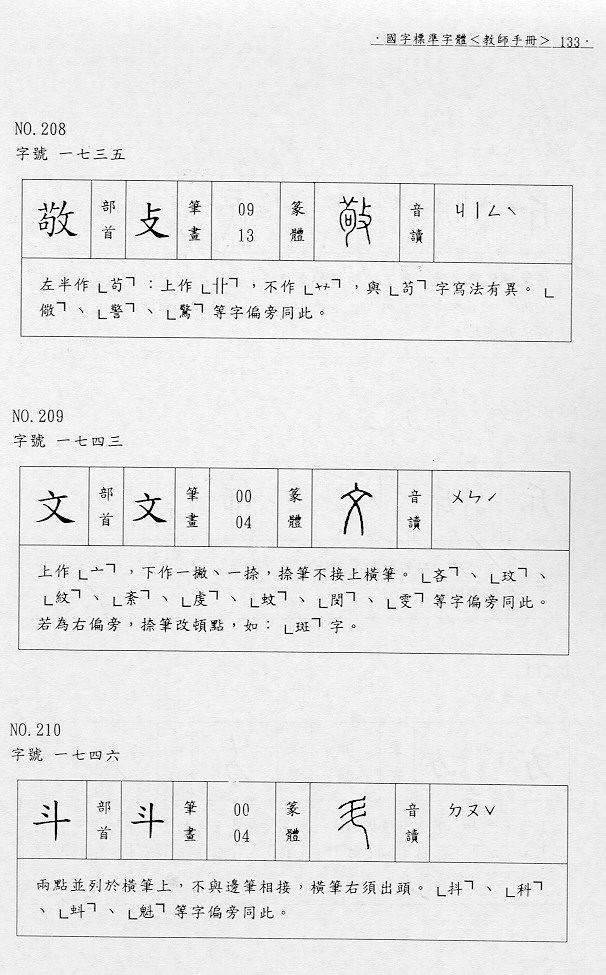 ·國字標準字體<教師手冊> 133·
NO.208
字號 一七三五
敬 部首 攴 筆畫 09 13 篆體 敬 音讀 ㄐㄧㄥˋ
左半作「茍」:上作「卝」,不作「艹」,與「苟」字寫法有異。「
儆」、「警」、「驚」等字偏旁同此。
NO.209
字號 一七四三
文 部首 文 筆畫 00 04 篆體 文 音讀 ㄨㄣˊ
上作「亠」,下作一撇、一捺,捺筆不接上橫筆。「吝」、「玟」、
「紋」、「紊」、「虔」、「蚊」、「閔」、「雯」等字偏旁同此。
若為右偏旁,捺筆改頓點,如:「斑」字。
NO.210
字號 一七四六
斗 部首 斗 筆畫 00 04 篆體 斗 音讀 ㄉㄡˇ
兩點並列於橫筆上,不與邊筆相接,橫筆右須出頭。「抖」、「科」
、「蚪」、「魁」等字偏旁同此。